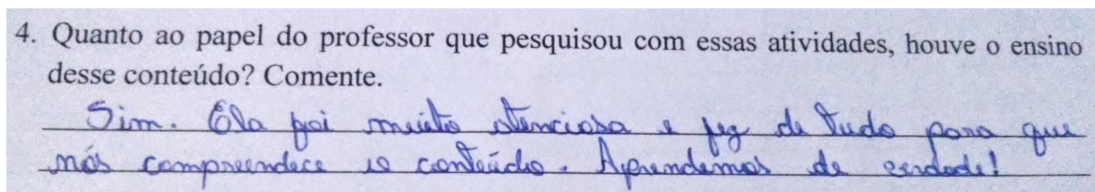 4. Quanto ao papel do professor que pesquisou com essas atividades, houve o ensino
desse conteúdo? Comente.
Sim. Ela foi muito atenciosa e fez de tudo para que
nós compreendece o conteúdo. Aprendemos de verdade!